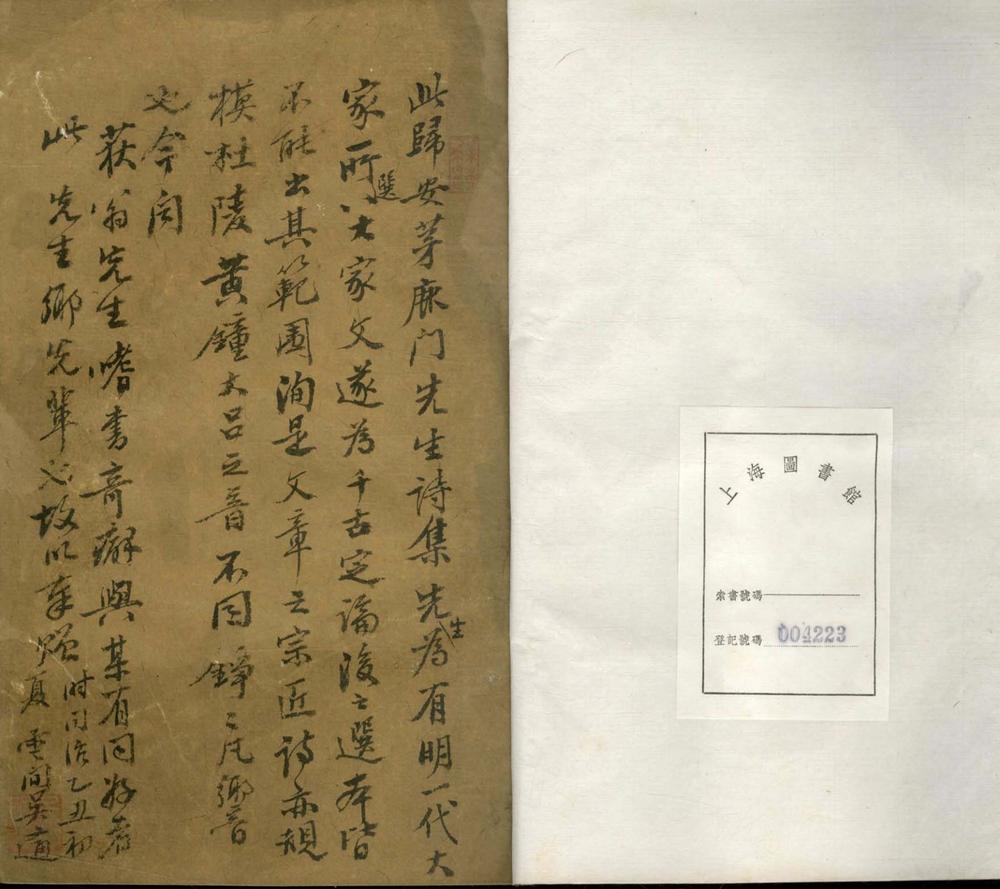 此歸安茅鹿门先生詩集先生為有明一代大
家所選八大家文遂為千古定論後之選本皆
不能出其範圍洵是文章之宗匠詩亦規
模杜陵黃鐘大呂之音不同錚〻凡響
也今閱
荻翁先生嗜書奇癖與某有同好者
此先生鄉先輩也故以奉贈
时同治乙丑初
夏雲间吳適
上海圖書館
索書號碼
登記號碼 004223